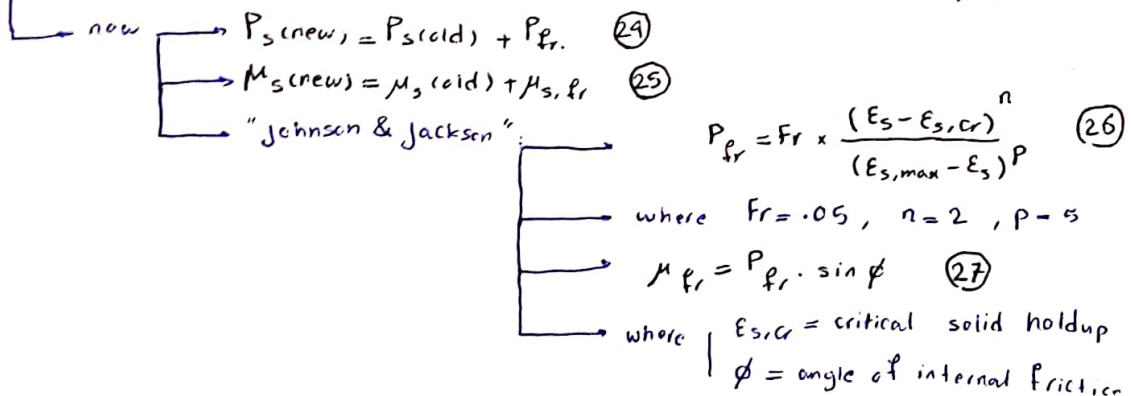 now
P_s(new) = P_s(old) + P_fr. (24)
μ_s(new) = μ_s(old) + μ_s,fr (25)
"Johnson & Jackson":
P_fr = Fr × (ε_s - ε_s,cr)^n / (ε_s,max - ε_s)^p (26)
where Fr = .05, n = 2, p = 5
μ_fr = P_fr. sin φ (27)
where ε_s,cr = critical solid holdup
φ = angle of internal friction